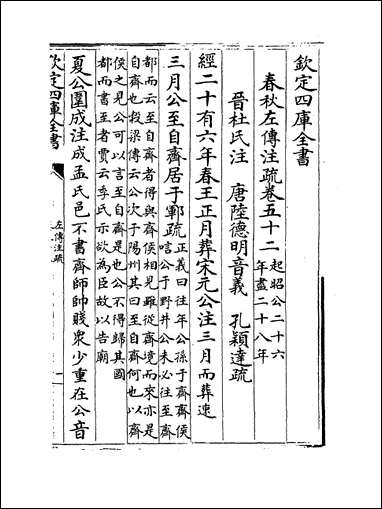 欽定四庫全書
春秋左傳注疏卷五十二
起昭公二十六
年盡二十八年
晉杜氏注 唐陸德明音義 孔穎達疏
經二十有六年春王正月葬宋元公注三月而葬速
三月公至自齊居于鄆疏
正義曰往年公孫于齊齊侯
唁公于野井公未必往至齊
都而云至自齊者得與齊侯相見雖從齊境而來亦是
自齊也穀梁傳云公次于陽州其曰至自齊何也以齊
侯之見公可以言至自齊是也公不得歸其國
都而書至者賈云季氏示欲為臣故以告廟
夏公圍成注成孟氏邑不書齊師帥賤衆少重在公音
欽定四庫全書
左傳注疏
一